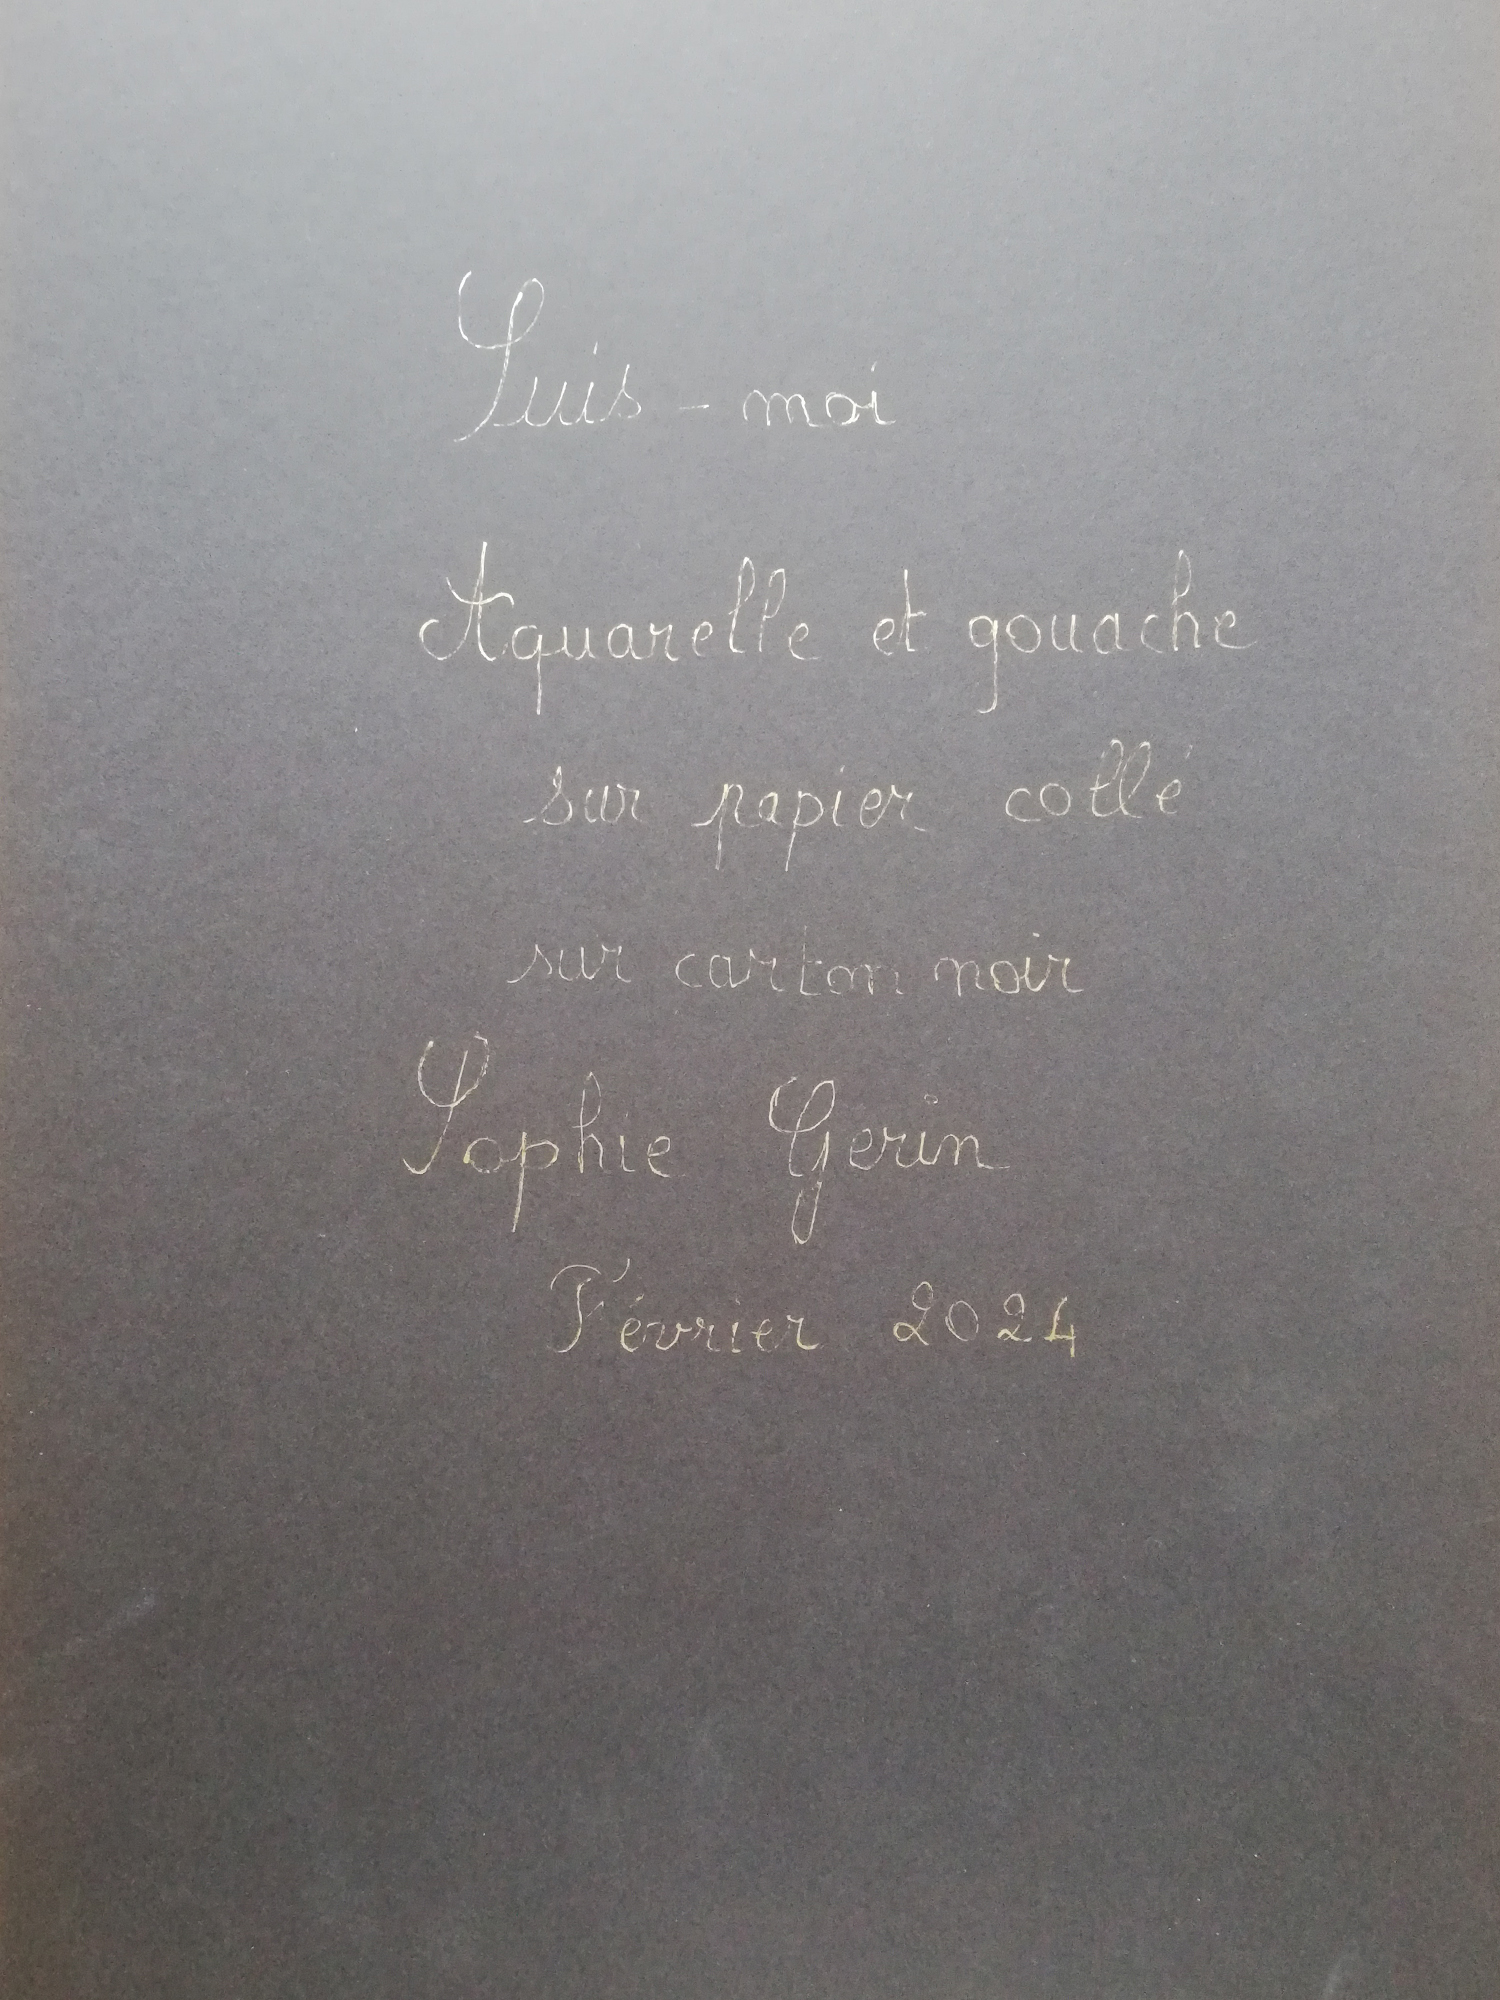 Suis-moi
Aquarelle et gouache
sur papier collé
sur carton noir
Sophie Gerin
Février 2024